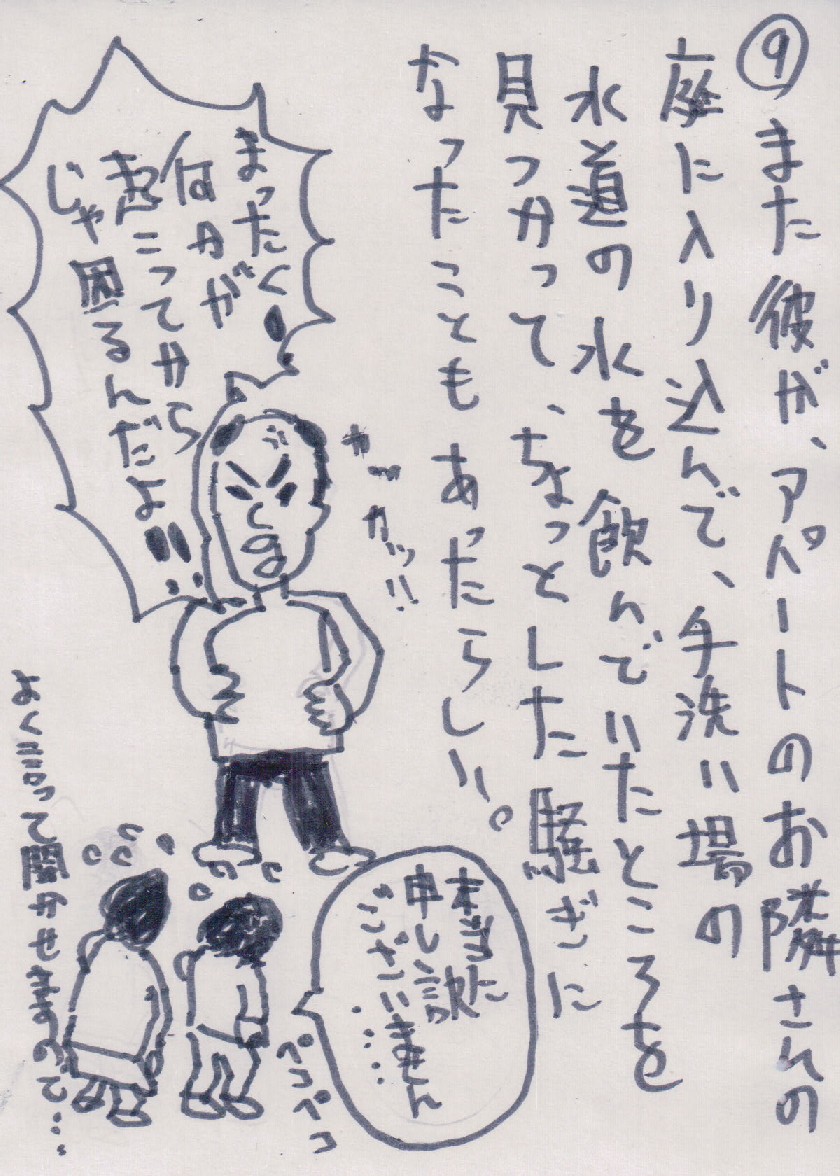 ⑨また彼が、アパートのお隣さんの
庭に入り込んで、手洗い場の
水道の水を飲んでいたところを
見つかって、ちょっとした騒ぎに
なったこともあったらしい。
まったく、
何かが
起こってから
じゃ困るんだよ!!
ガミガミ!!
本当に
申し訳
ございません
・・・・
ペコペコ
よく言って聞かせますので・・・